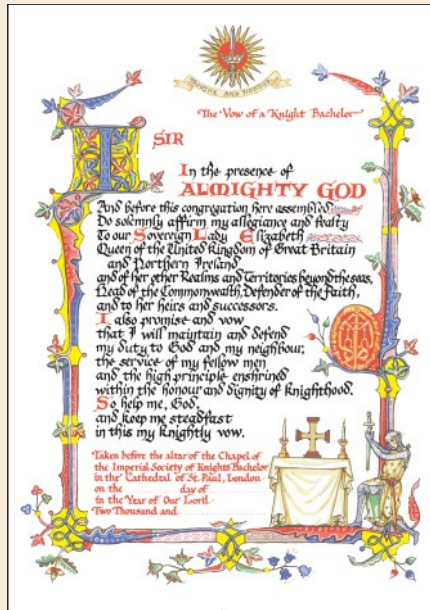 The Vow of a Knight Bachelor
I SIR
In the presence of
ALMIGHTY GOD
And before this congregation here assembled
Do solemnly affirm my allegiance and fealty
To our Sovereign Lady Elizabeth
Queen of the United Kingdom of Great Britain
and Northern Ireland
and of her other Realms and Territories beyond the seas,
Head of the Commonwealth, Defender of the Faith,
and to her heirs and successors.
I also promise and vow
that I will maintain and defend
my duty to God and my neighbour,
the service of my fellow men
and the high principle enshrined
within the honour and dignity of knighthood.
So help me, God,
and keep me steadfast
in this my knightly vow.
Taken before the altar of the Chapel of
the Imperial Society of Knights Bachelor
in the Cathedral of St. Paul, London
on the day of
in the Year of Our Lord
Two Thousand and